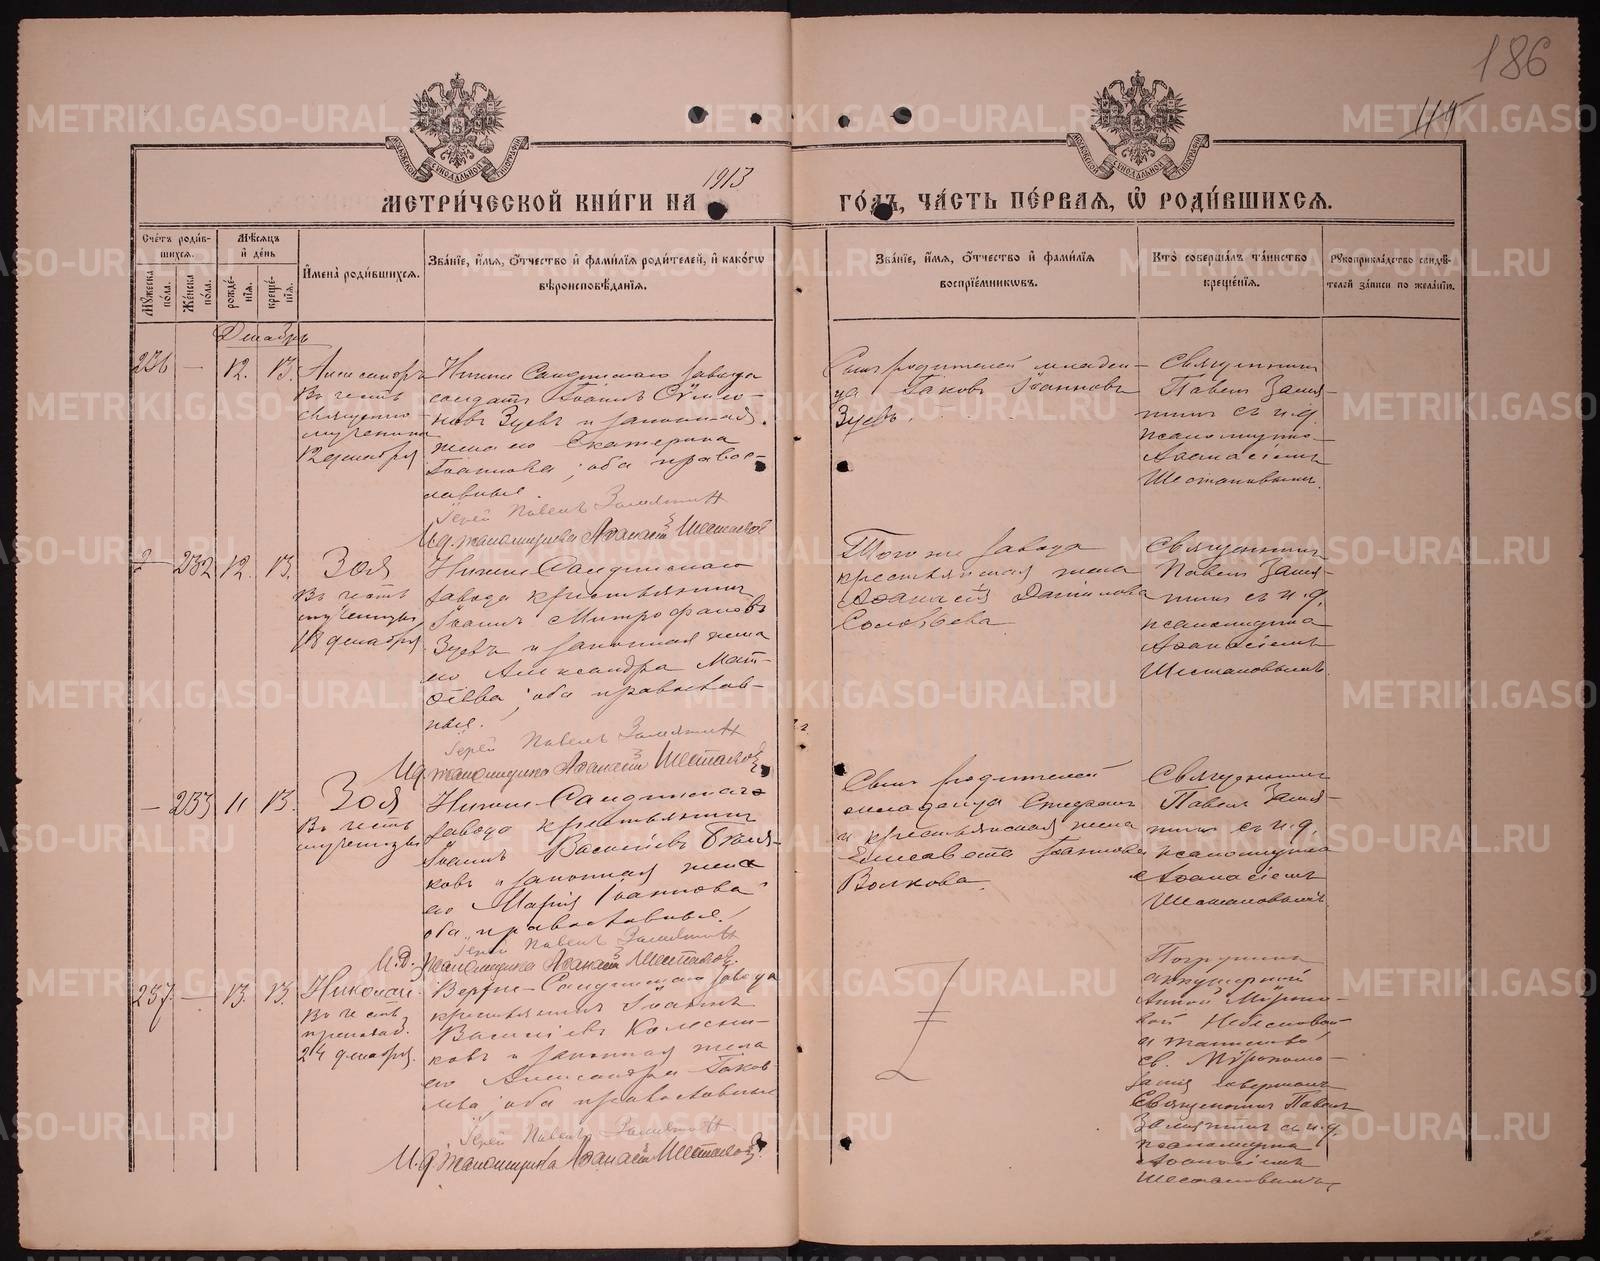 186
1913
МЕТРИ́ЧЕСКОЙ КНИ́ГИ НА
ГО́ДЪ, ЧА́СТЬ ПЕ́РВАѦ, Ѽ РОДИ́ВШИХСѦ.
Сче́тъ роди́в-
шихсѧ.
Мѣ́сѧцъ
и҆ де́нь
Мꙋ́жеска
по́ла.
Же́нска
по́ла.
рожде́-
нїѧ.
креще́-
нїѧ.
И҆мена̀ роди́вшихсѧ.
Зва́нїе, и҆́мѧ, ѻ҆́тчество и҆ фами́лїѧ роди́телей, и҆ како́гѡ
вѣроисповѣ́данїѧ.
Зва́нїе, и҆́мѧ, ѻ҆́тчество и҆ фами́лїѧ
воспрїе́мникѡвъ.
Кто̀ соверша́лъ та́инство
креще́нїѧ.
Рꙋкоприкла́дство свидѣ́-
телей за́писи по жела́нїю.
Декабрь
236 — 12. 13.
Александръ
Въ честь
священно-
мученика
12 декабря
Нижне-Салдинскаго завода
солдатъ Іоаннъ
Зуевъ и законная
жена его Екатерина
Іоаннова; оба правос-
лавные.
Іерей Павелъ Замятинъ
И.д. псаломщика Аѳанасій Шестаковъ
Сынъ родителей младен-
ца Іаковъ Іоанновъ
Зуевъ.
Священникъ
Павелъ Замя-
тинъ съ и.д.
псаломщика
Аѳанасіемъ
Шестаковымъ.
— 232 12. 13.
Зоя
Въ честь
мученицы
18 декабря.
Нижне-Салдинскаго
завода крестьянинъ
Іоаннъ Митрофановъ
Зуевъ и законная жена
его Александра Мат-
ѳеева; оба православ-
ные.
Іерей Павелъ Замятинъ
И.д. псаломщика Аѳанасій Шестаковъ
Того же завода
крестьянская жена
Аѳанасія Данилова
Соловьева
Священникъ
Павелъ Замя-
тинъ съ и.д.
псаломщика
Аѳанасіемъ
Шестаковымъ.
— 233 11 13.
Зоя
Въ честь
мученицы
Нижне-Салдинскаго
завода крестьянинъ
Іоаннъ Васильевъ
и законная жена
его Марія Іоаннова
оба православные.
Іерей Павелъ Замятинъ
И.д. псаломщика Аѳанасій Шестаковъ.
Сынъ родителей
младенца Стефанъ
и крестьянская жена
Елисавета Іоаннова
Волкова.
Священникъ
Павелъ Замя-
тинъ съ и.д.
псаломщика
Аѳанасіемъ
Шестаковымъ.
237. — 13. 13.
Николай
Въ честь
преподоб.
24 декабря.
Верхне-Салдинскаго завода
крестьянинъ Іоаннъ
Васильевъ Колесни-
ковъ и законная жена
его Александра Іаков-
лева; оба православные
Іерей Павелъ Замятинъ
И.д. псаломщика Аѳанасій Шестаковъ.
Погруженъ
акушеркой
Анной
а таинство
св. Мѵропома-
занія совершилъ
Священникъ Павелъ
Замятинъ съ и.д.
псаломщика
Аѳанасіемъ
Шестаковымъ.
METRIKI.GASO-URAL.RU